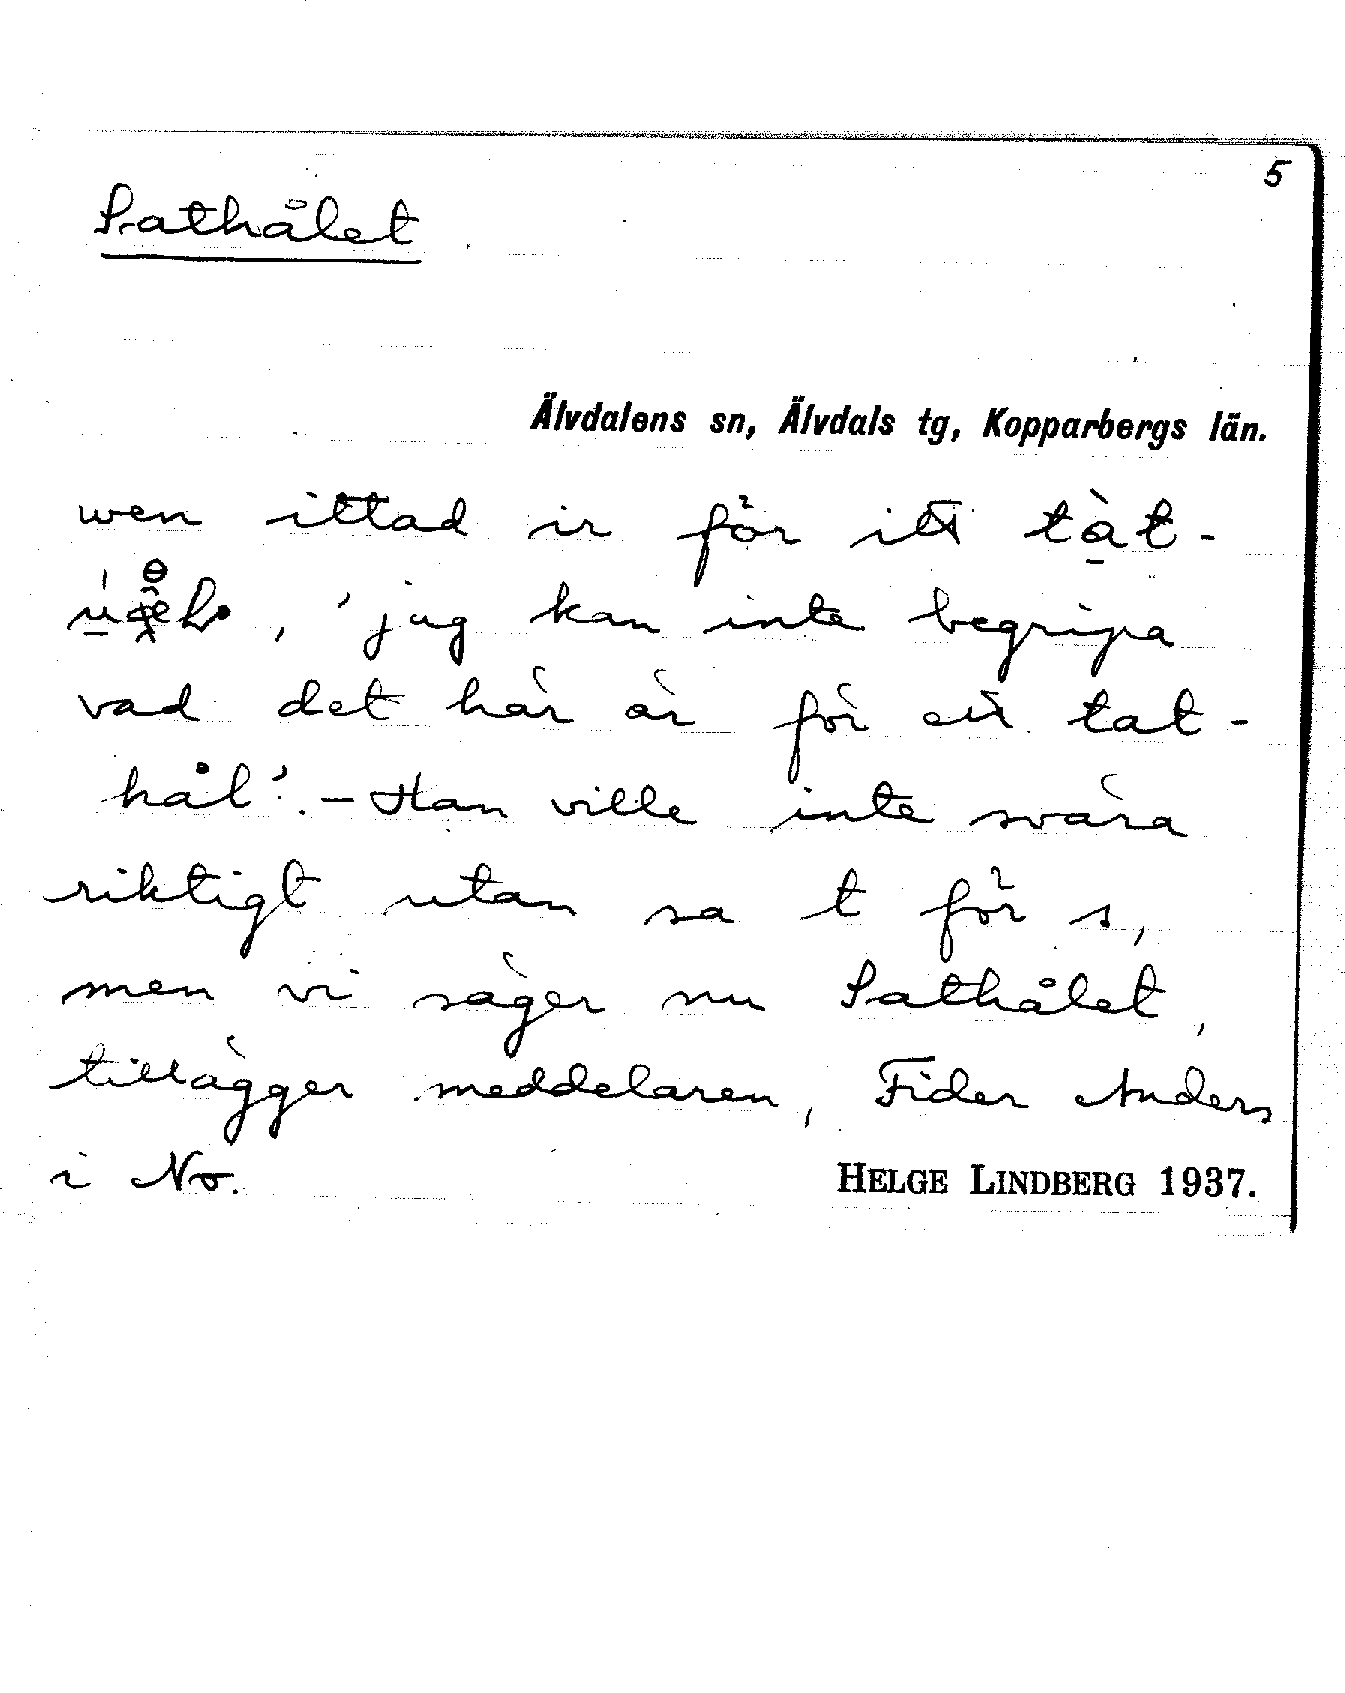 5
Sathålet
Älvdalens sn, Älvdals tg, Kopparbergs län.
wen ittad ir för itt tàt-
, 'jag kan inte begripa
vad det här är för ett tat-
hål'. – Han ville inte svara
riktigt utan sa t för s,
men vi säger nu Sathålet,
tillägger meddelaren, Fider Anders
i No.
HELGE LINDBERG 1937.